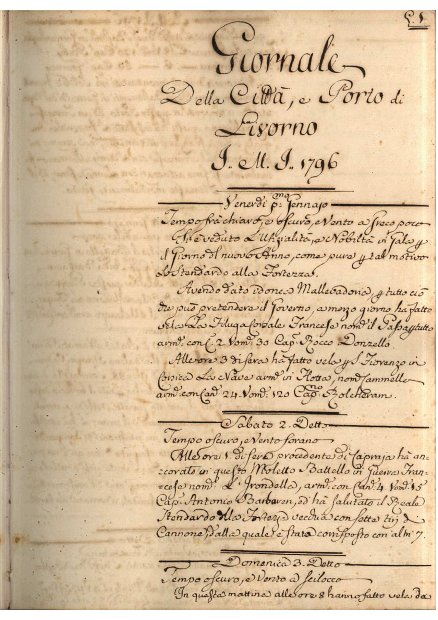 C. 1
Giornale
Della Città, e Porto di
Livorno
J.. M.. J.. 1796
Venerdi p.mo Gennajo
Tempo frà chiaro, e oscuro, e Vento a Greco poco
veduto L'Ufizialità, e Nobiltà in Gala p
il Giorno del nuovo Anno, come pure p tal motivo
Lo Stendardo alla Fortezza.
Avendo dato idonea Mallevadoria, p tutto ciò
che può pretendere il Governo, a mezo giorno hà fatto
vela La Filuga Corsale Francese nom.
arm. con C. 2 Vom. 30 Cap. Rocco Donzello
Alle ore 3 di sera hà fatto vela p S. Fiorenzo in
Corsica La Nave arm. in Flotta, nom.
arm. con Can. 24 Vom. 120 Cap.no
Sabato 2. Detto
Tempo oscuro, e Vento forano
Alle ore 1 di sera procedente di Capraja hà an=
corato in questo Moletto Battello in Guerra Fran=
cese nom. L'Irondella, arm. con Can. 4 Vom. 15
Cap. Antonio Barbaren, ed hà salutato il Reale
Stendardo della Fortezza Vecchia con sette tiri di
Cannone, dalla quale è stato corrisposto con altri 7.
Domenica 3. Detto
Tempo oscuro, e Vento a Scilocco
In questa mattina alle ore 8 hanno fatto vela da